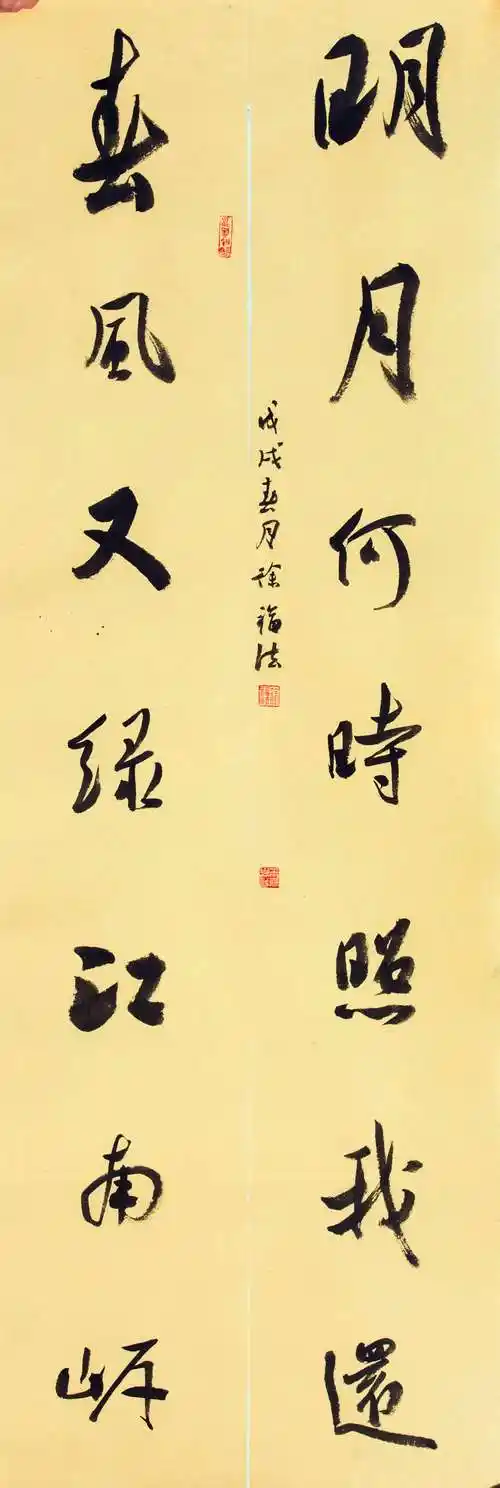 明月何時照我還
戊戌春月徐福法
春風又緑江南岸